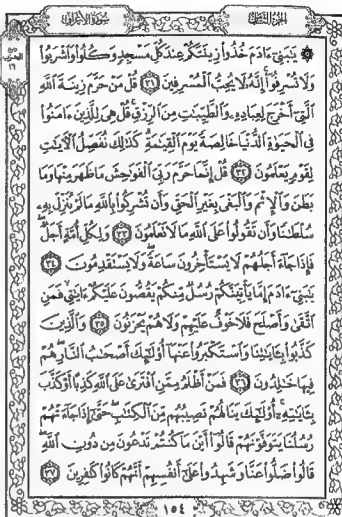 الجزء الثامن
سورة الأعراف
يَٰبَنِىٓ ءَادَمَ خُذُوا۟ زِينَتَكُمْ عِندَ كُلِّ مَسْجِدٍ وَكُلُوا۟ وَٱشْرَبُوا۟
وَلَا تُسْرِفُوٓا۟ إِنَّهُۥ لَا يُحِبُّ ٱلْمُسْرِفِينَ ٣١ قُلْ مَنْ حَرَّمَ زِينَةَ ٱللَّهِ
ٱلَّتِىٓ أَخْرَجَ لِعِبَادِهِۦ وَٱلطَّيِّبَٰتِ مِنَ ٱلرِّزْقِ قُلْ هِىَ لِلَّذِينَ ءَامَنُوا۟
فِى ٱلْحَيَوٰةِ ٱلدُّنْيَا خَالِصَةً يَوْمَ ٱلْقِيَٰمَةِ كَذَٰلِكَ نُفَصِّلُ ٱلْءَايَٰتِ
لِقَوْمٍ يَعْلَمُونَ ٣٢ قُلْ إِنَّمَا حَرَّمَ رَبِّىَ ٱلْفَوَٰحِشَ مَا ظَهَرَ مِنْهَا وَمَا
بَطَنَ وَٱلْإِثْمَ وَٱلْبَغْىَ بِغَيْرِ ٱلْحَقِّ وَأَن تُشْرِكُوا۟ بِٱللَّهِ مَا لَمْ يُنَزِّلْ بِهِۦ
سُلْطَٰنًا وَأَن تَقُولُوا۟ عَلَى ٱللَّهِ مَا لَا تَعْلَمُونَ ٣٣ وَلِكُلِّ أُمَّةٍ أَجَلٌ
فَإِذَا جَآءَ أَجَلُهُمْ لَا يَسْتَأْخِرُونَ سَاعَةً وَلَا يَسْتَقْدِمُونَ ٣٤
يَٰبَنِىٓ ءَادَمَ إِمَّا يَأْتِيَنَّكُمْ رُسُلٌ مِّنكُمْ يَقُصُّونَ عَلَيْكُمْ ءَايَٰتِى فَمَنِ
ٱتَّقَىٰ وَأَصْلَحَ فَلَا خَوْفٌ عَلَيْهِمْ وَلَا هُمْ يَحْزَنُونَ ٣٥ وَٱلَّذِينَ
كَذَّبُوا۟ بِـَٔايَٰتِنَا وَٱسْتَكْبَرُوا۟ عَنْهَآ أُو۟لَٰٓئِكَ أَصْحَٰبُ ٱلنَّارِ هُمْ
فِيهَا خَٰلِدُونَ ٣٦ فَمَنْ أَظْلَمُ مِمَّنِ ٱفْتَرَىٰ عَلَى ٱللَّهِ كَذِبًا أَوْ كَذَّبَ
بِـَٔايَٰتِهِۦٓ أُو۟لَٰٓئِكَ يَنَالُهُمْ نَصِيبُهُم مِّنَ ٱلْكِتَٰبِ حَتَّىٰٓ إِذَا جَآءَتْهُمْ
رُسُلُنَا يَتَوَفَّوْنَهُمْ قَالُوٓا۟ أَيْنَ مَا كُنتُمْ تَدْعُونَ مِن دُونِ ٱللَّهِ
قَالُوا۟ ضَلُّوا۟ عَنَّا وَشَهِدُوا۟ عَلَىٰٓ أَنفُسِهِمْ أَنَّهُمْ كَانُوا۟ كَٰفِرِينَ ٣٧
١٥٤